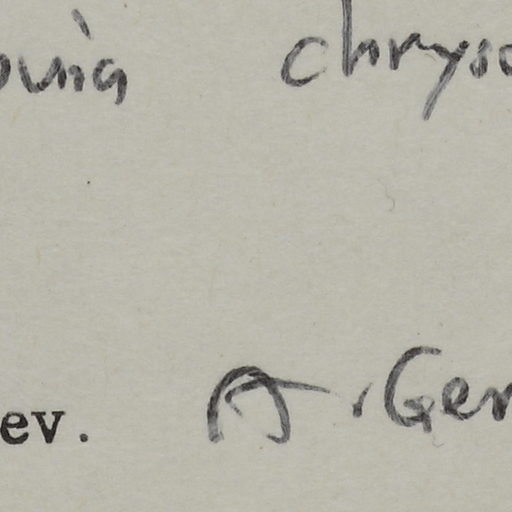 ouia chryso
ev. A. Gen